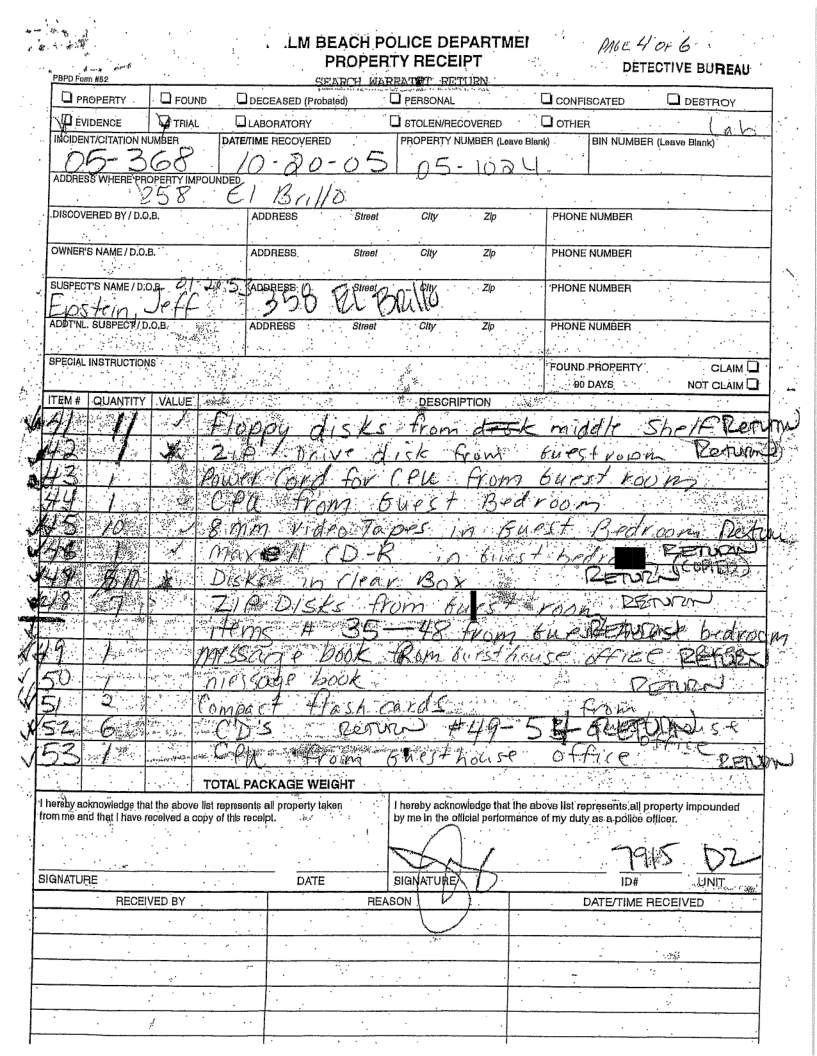 LM BEACH POLICE DEPARTME
PROPERTY RECEIPT
PAGE 4 OF 6
DETECTIVE BUREAU
PBPD Form #52
SEARCH WARRATET RETURN
PROPERTY FOUND DECEASED (Probated) PERSONAL CONFISCATED DESTROY
EVIDENCE TRIAL LABORATORY STOLEN/RECOVERED OTHER Lab
INCIDENT/CITATION NUMBER DATE/TIME RECOVERED PROPERTY NUMBER (Leave Blank) BIN NUMBER (Leave Blank)
05-368 10-20-05 05-1024
ADDRESS WHERE PROPERTY IMPOUNDED
258 El Brillo
DISCOVERED BY / D.O.B. ADDRESS Street City Zip PHONE NUMBER
OWNER'S NAME / D.O.B. ADDRESS Street City Zip PHONE NUMBER
SUSPECT'S NAME / D.O.B. ADDRESS Street City Zip PHONE NUMBER
Epstein, Jeff 358 El Brillo
ADDT'NL. SUSPECT / D.O.B. ADDRESS Street City Zip PHONE NUMBER
SPECIAL INSTRUCTIONS FOUND PROPERTY CLAIM
90 DAYS NOT CLAIM
ITEM # QUANTITY VALUE DESCRIPTION
41 11 Floppy disks from middle Shelf Return
42 1 ZIP Drive disk from Guest room Return
43 1 Power Cord for CPU from Guest room
44 1 CPU from Guest Bedroom
45 10 8mm video Tapes in Guest Bedroom Return
46 1 Maxell CD-R in Guest bedr RETURN (COPIED)
48 Disks in Clear Box RETURN
48 7 ZIP DISKS from Guest room RETURN
items # 35-48 from bedroom
49 1 message book from Guesthouse office RETURN
50 1 message book RETURN
51 2 Compact flash cards from
52 6 CD'S Return #49-5 office
53 1 CPU from Guesthouse office RETURN
TOTAL PACKAGE WEIGHT
I hereby acknowledge that the above list represents all property taken from me and that I have received a copy of this receipt.
I hereby acknowledge that the above list represents all property impounded by me in the official performance of my duty as a police officer.
7915 D2
SIGNATURE DATE SIGNATURE ID# UNIT
RECEIVED BY REASON DATE/TIME RECEIVED